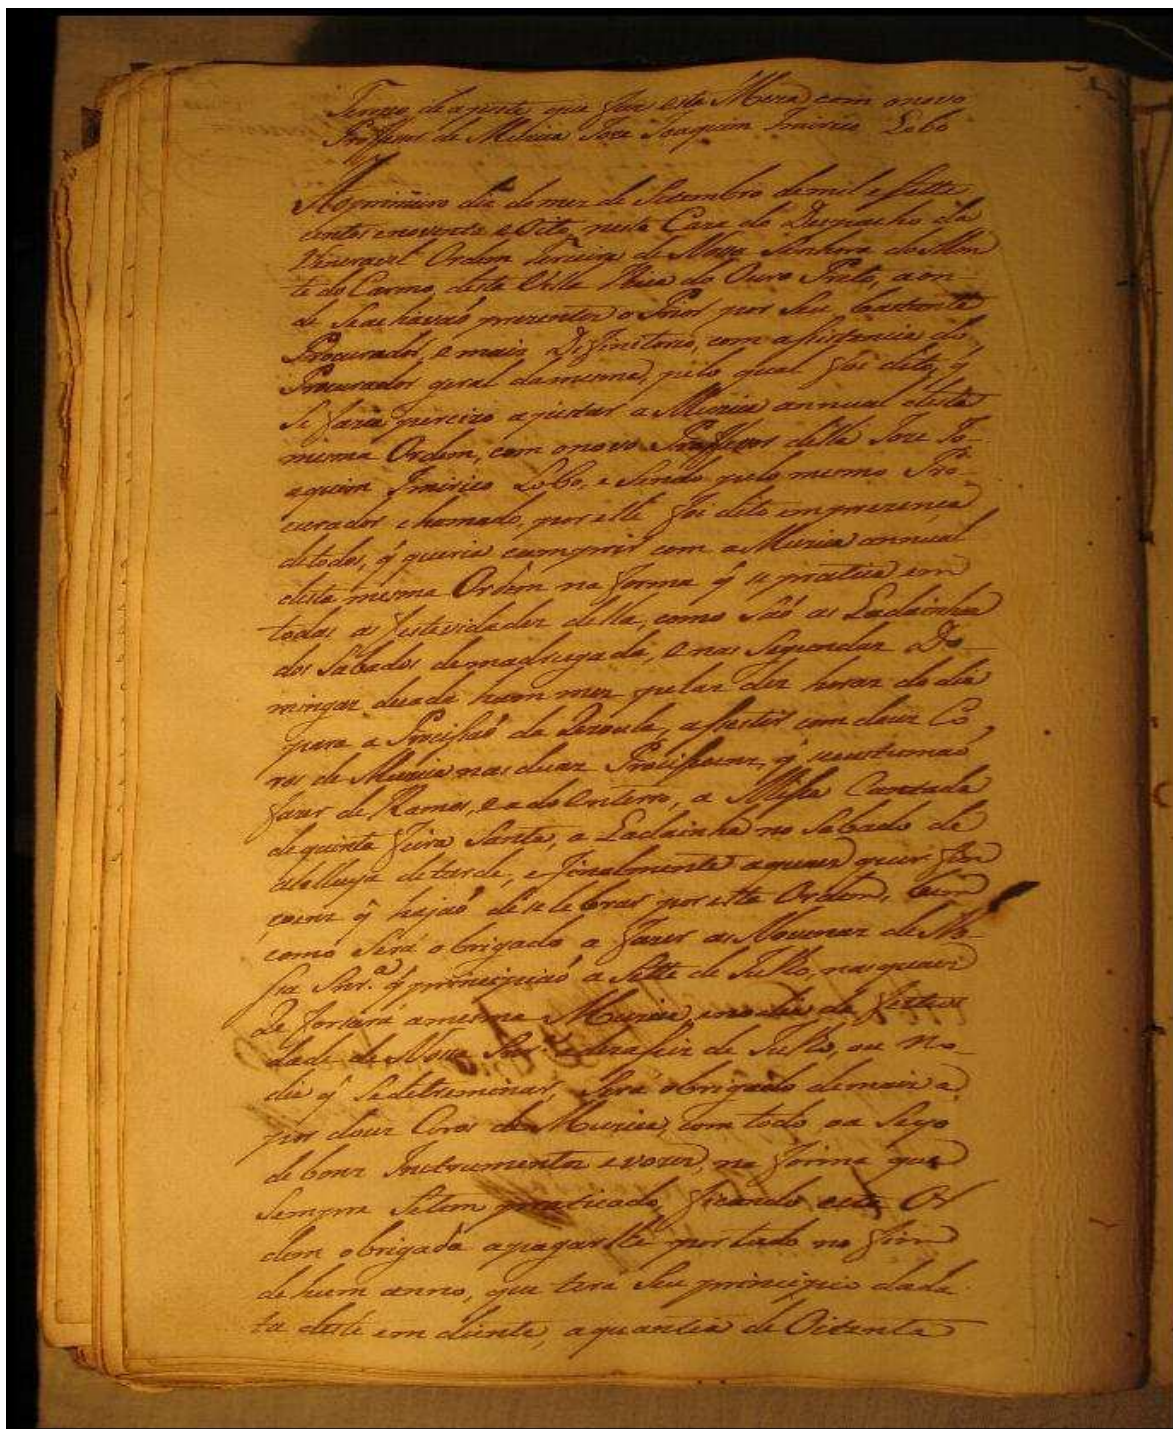 Termo de ajuste que faz esta Meza, com o novo
Professor de Muzica Joze Joaquim Emirico Lobo
Ao primeiro dia do mez de Setembro de mil e sette
centos e noventa e Oito, nesta Caza do Despacho da
Veneravel Ordem Terceira de Nossa Senhora do Mon
te do Carmo, desta Villa Rica do Ouro Preto, aon-
de Se achavaõ prezentes o Prior por Seu bastante
Procurador, e mais Diffinitorio, com assistencia do
Procurador geral da mesma, pelo qual foi dito, q̃
se fazia precizo ajustar a Muzica annual desta
mesma Ordem, com o novo Professor della Joze Jo-
aquim Emirico Lobo, e Sendo pelo mesmo Pro-
curador chamado, por elle foi dito em prezença
de todos, q̃ queria cumprir com a Muzica annual
desta mesma Ordem na forma q̃ se pratica em
todas as festividades della, como Saõ as Ladainhas
dos Sabados de madrugada, e nas Segundas Do-
mingas de cada hum mez pelas dez horas do dia
para a Procissaõ da Rezoula, assestir com douz Co
ros de Muzica nas duas Procissoens, q̃ se custumaõ
fazer de Ramos, e a do Enterro, a Missa Cantada
de quinta feira Santa, a Ladainha no Sabado de
alelluya de tarde, e finalmente a quaes quer fun
çoens q̃ hajaõ de se lebrar por esta Ordem, bem
como Será obrigado a fazer as Novenas de No-
ssa Snr.ª q̃ principiaõ a Sette de Julho, nas quaes
Re forsará a mesma Muzica, e no dia da festivi
dade de Nossa Snr.ª a dezaseis de Julho, ou no
dia q̃ Se detreminar, Será obrigado de mais a
por douz Coros de Muzica, com todo o a Seyo
de bons Instrumentos e vozes, na forma que
Sempre Se tem praticado, ficando esta Or
dem obrigada a pagar lhe por tudo no fim
de hum anno, que tera Seu principio da da
ta deste em diente, a quantia de Oitenta